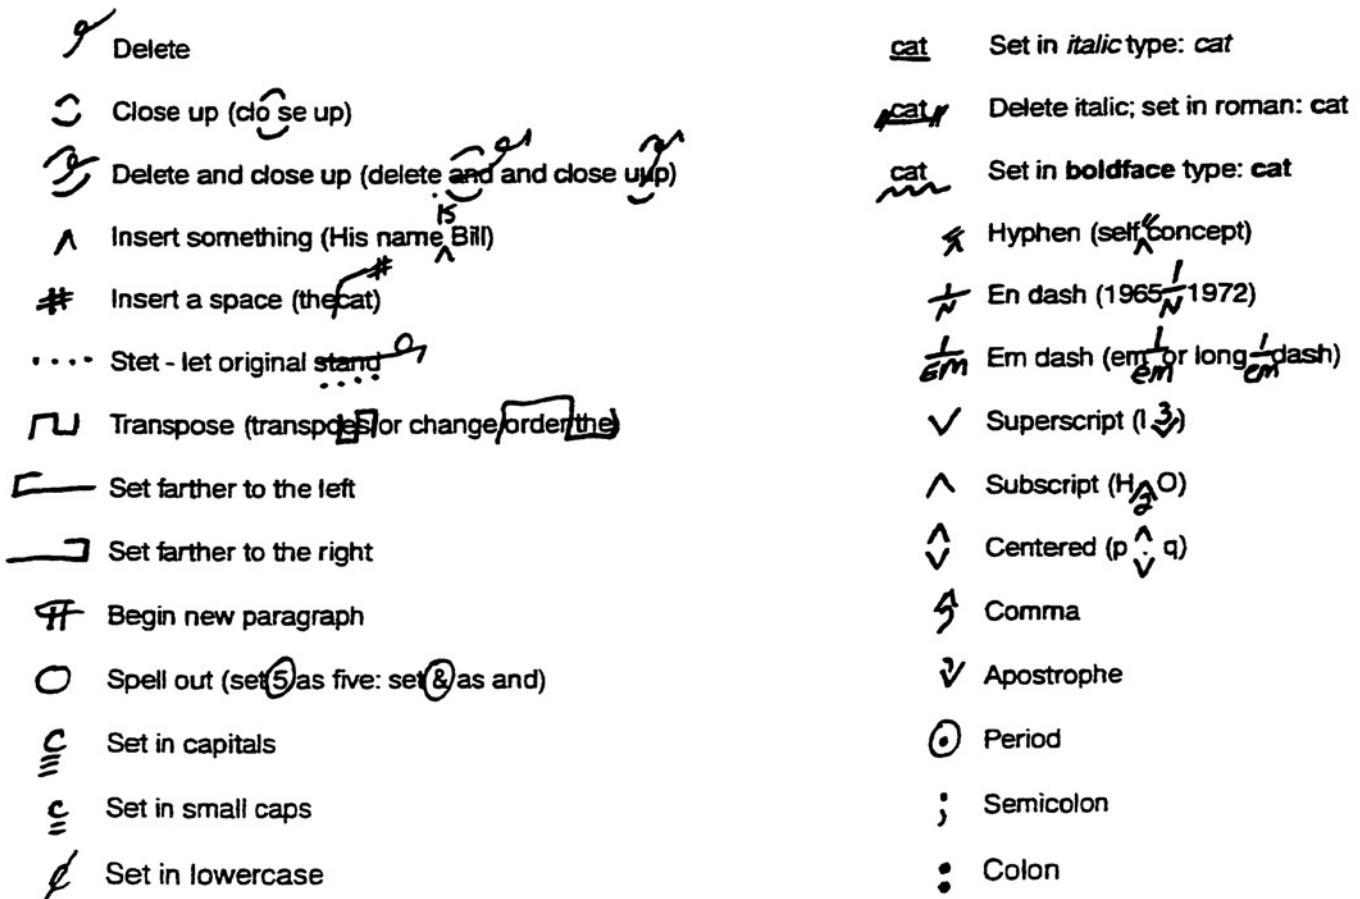 Delete
Close up (clo se up)
Delete and close up (delete and and close uup)
is
Insert something (His name Bill)
#
# Insert a space (thecat)
Stet - let original stand
Transpose (transpoes or change order the)
Set farther to the left
Set farther to the right
Begin new paragraph
Spell out (set 5 as five: set & as and)
c Set in capitals
c Set in small caps
c Set in lowercase
cat Set in italic type: cat
cat Delete italic; set in roman: cat
cat Set in boldface type: cat
Hyphen (self concept)
1/N En dash (1965 1/N 1972)
1/EM Em dash (em 1/em or long 1/em dash)
Superscript (l 3)
Subscript (H 2 O)
Centered (p · q)
Comma
Apostrophe
Period
; Semicolon
: Colon